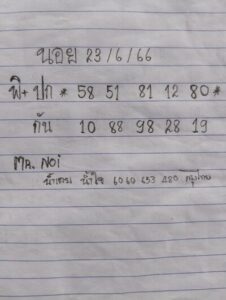 นอย 23/6/66
พี+ ปก * 58 51 81 12 80*
กัน 10 88 98 28 19
MR. NOi
น้ำใจ 6060 453 480 กรุงไทย